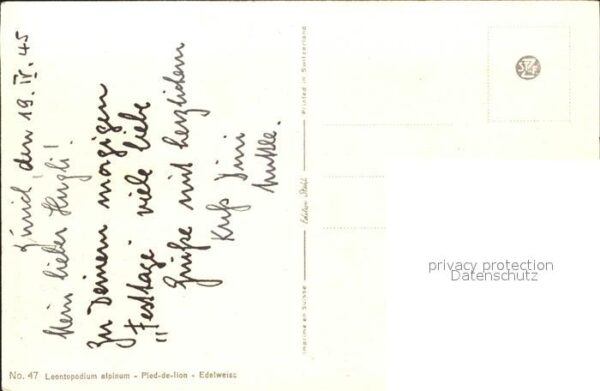 Zürich, den 19. IV. 45
Mein lieber Hugli!
Zu Deinem morgigen
"Festtage" viele liebe
Grüße mit herzlichem
Kuß Dini
No. 47 Leontopodium alpinum - Pied-de-lion - Edelweiss
Imprimé en Suisse
Printed in Switzerland
privacy protection
Datenschutz